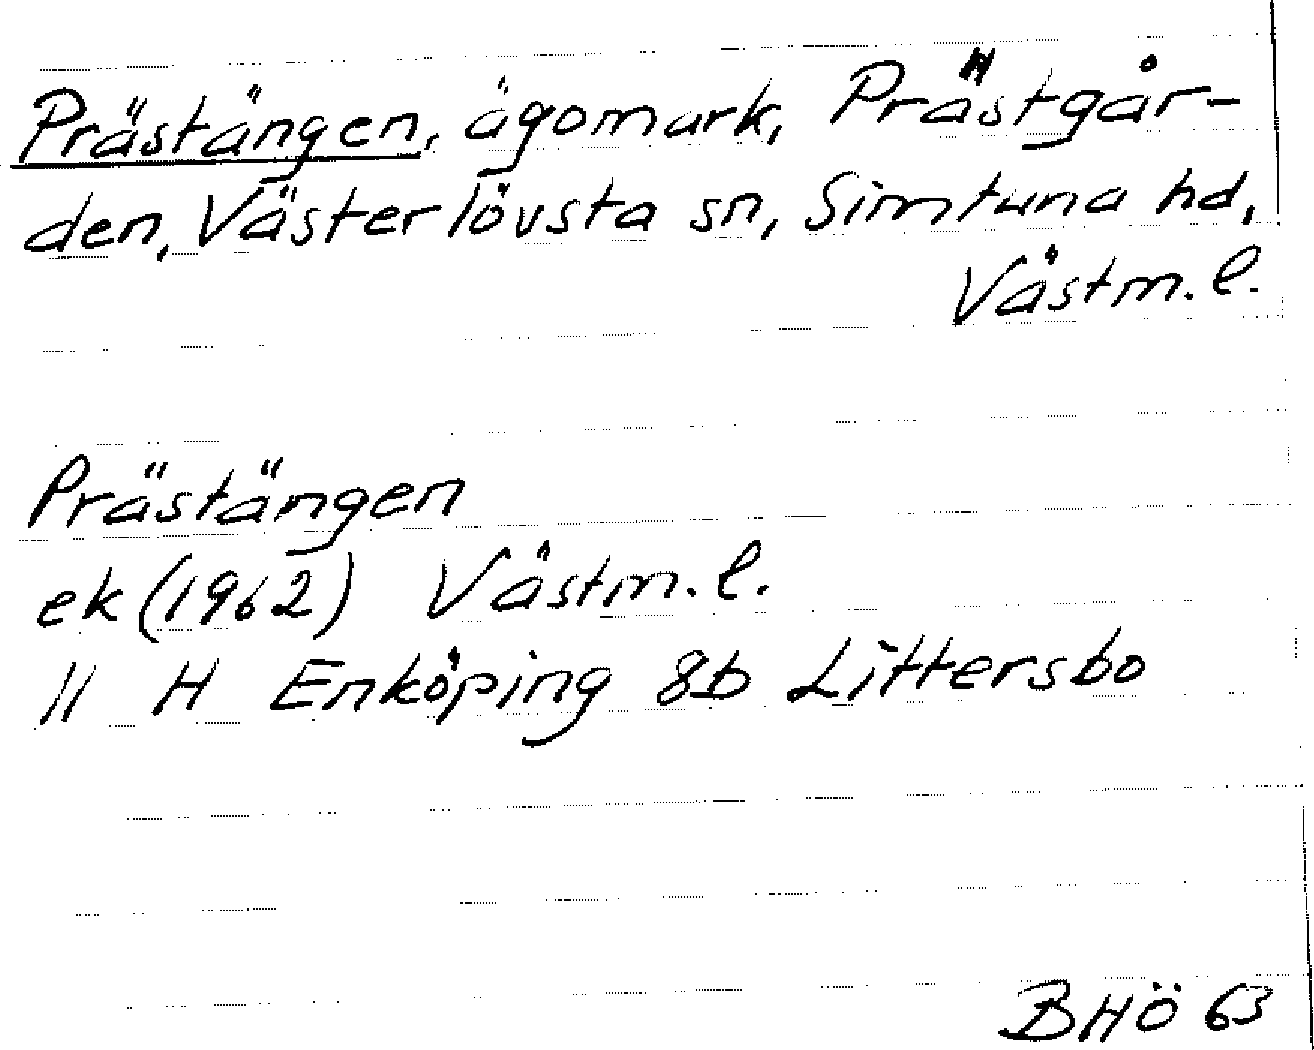 Prästängen, ägomark, Prästgår-
den, Västerlövsta sn, Simtuna hd,
Västm. l.
Prästängen
ek (1962) Västm. l.
11 H Enköping 8b Littersbo
BHÖ 63